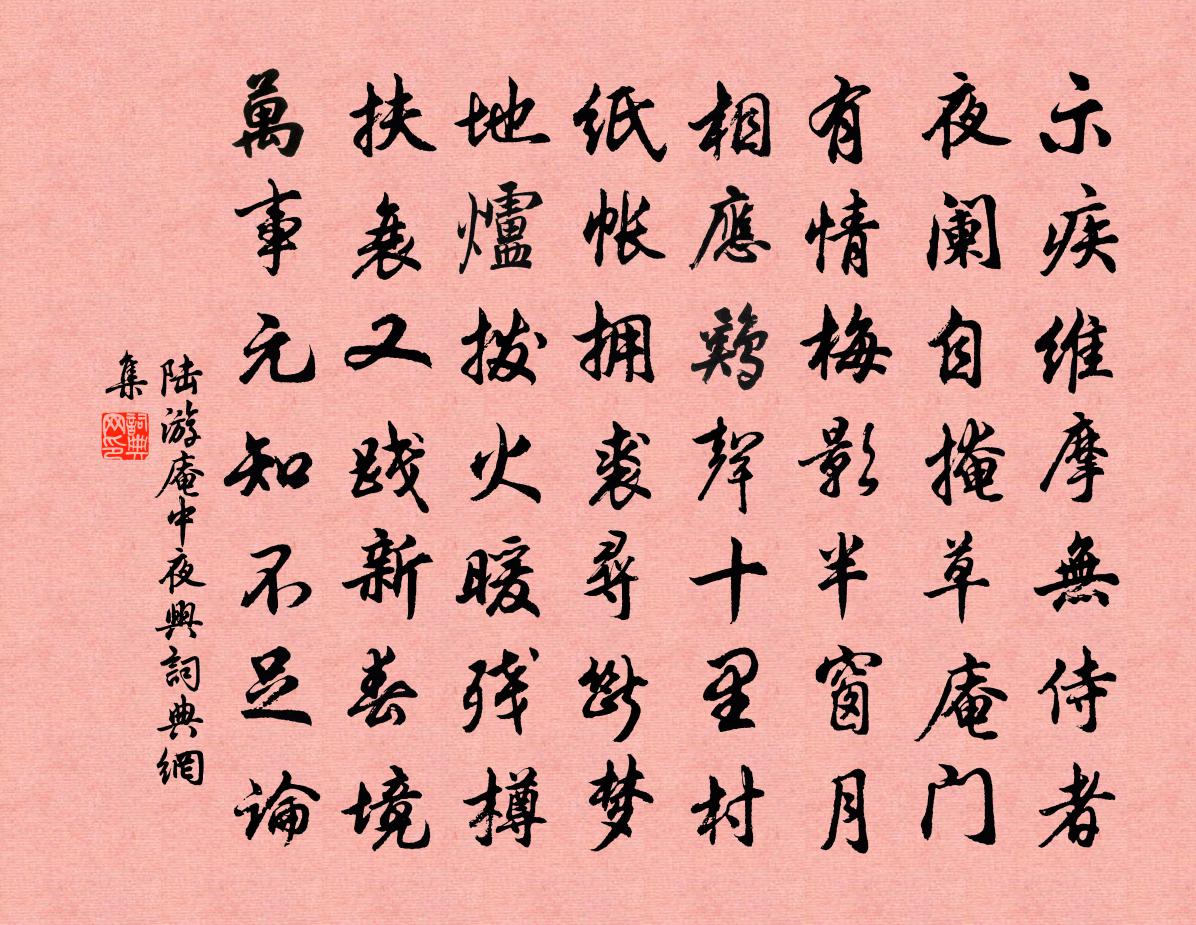 示疾维摩無侍者
夜阑自掩草庵门
有情梅影半窗月
相應鷄聲十里村
纸帐拥裘尋斷梦
地爐拨火暖残樽
扶衰又践新春境
萬事元知不足論
陆游庵中夜興詞典網
集
詞典网印